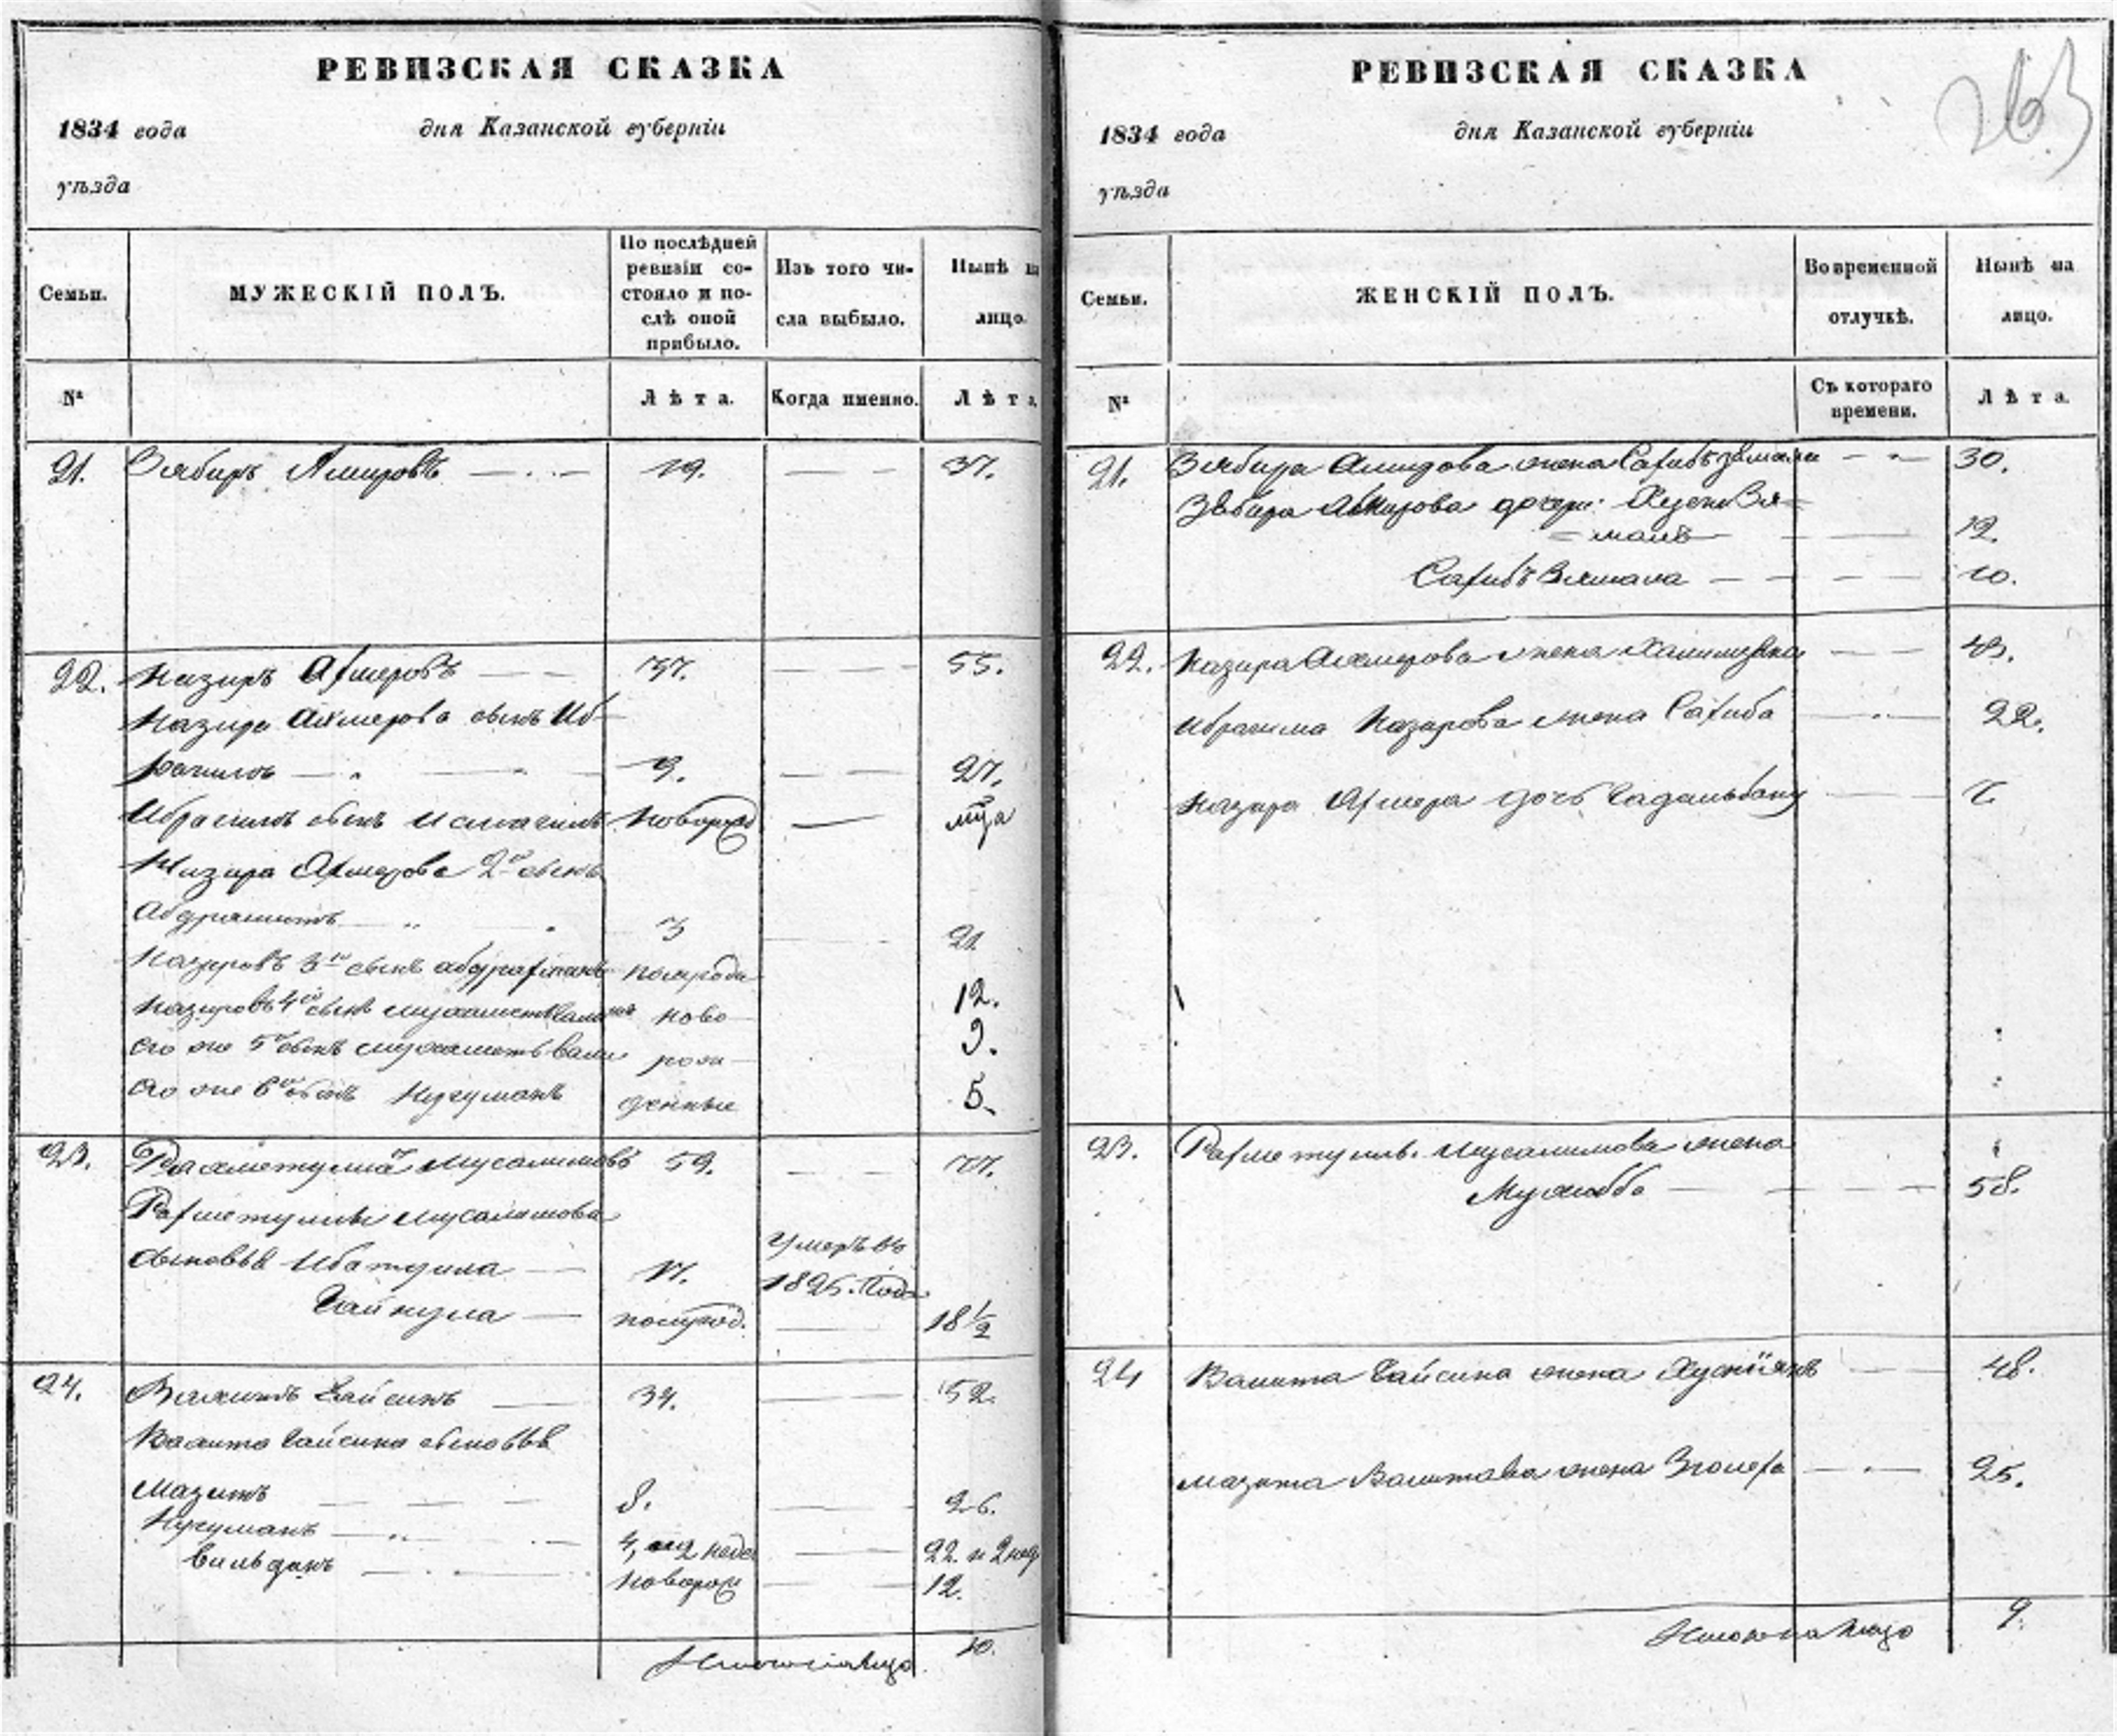 РЕВИЗСКАЯ СКАЗКА
1834 года дня Казанской губерніи
уѣзда
Семьи.
МУЖЕСКІЙ ПОЛЪ.
По послѣдней
ревизіи со-
стояло и по-
слѣ оной
прибыло.
Изъ того чи-
сла выбыло.
Нынѣ на
лицо.
№
Лѣта.
Когда именно.
Лѣта
21. Зябиръ Амировъ 19. 37.
22. Назиръ Ахмеровъ 37. 55.
Назира Ахмерова сынъ Иб-
рагимъ 9. 27.
Ибрагимъ сынъ Исмагилъ Новорож
Назира Ахмерова 2й сынъ
Абдрашитъ 3 21
Назировъ 3й сынъ абдрахманъ 12.
Назировъ 4й сынъ ново 9.
его же 5й сынъ мухаметьвали рож
его же 6й сынъ Нугуманъ денные 5.
23. Рахметулла Мусалимовъ 59. 77.
Рахметуллы Мусалимова
сыновья Ибатулла 17. Умеръ въ
1825. Года
Гайнула полугод. 18½
24. Вахитъ Гайсинъ 34. 52.
Вахита Гайсина сыновья
Мазитъ 8. 26.
Нугуманъ 4, 2 неде 22. и 2 нед
Вильданъ Новорож 12.
Итого налицо. 10.
РЕВИЗСКАЯ СКАЗКА
263
1834 года дня Казанской губерніи
уѣзда
Семьи.
ЖЕНСКІЙ ПОЛЪ.
Во временной
отлучкѣ.
Нынѣ на
лицо.
№
Съ котораго
времени.
Лѣта.
21. Зябира Амирова жена 30.
Зябира Амирова дочери:
12.
Сахибъ Зямала 10.
22. Назира Ахмерова жена 43.
Ибрагима Назирова жена Сахиба 22.
Назира Ахмера дочь
23. Рахметуллы Мусалимова жена
58.
24 Вахита Гайсина жена 48.
Мазита Вахитова жена Зюлефа 25.
Итого налицо 9.